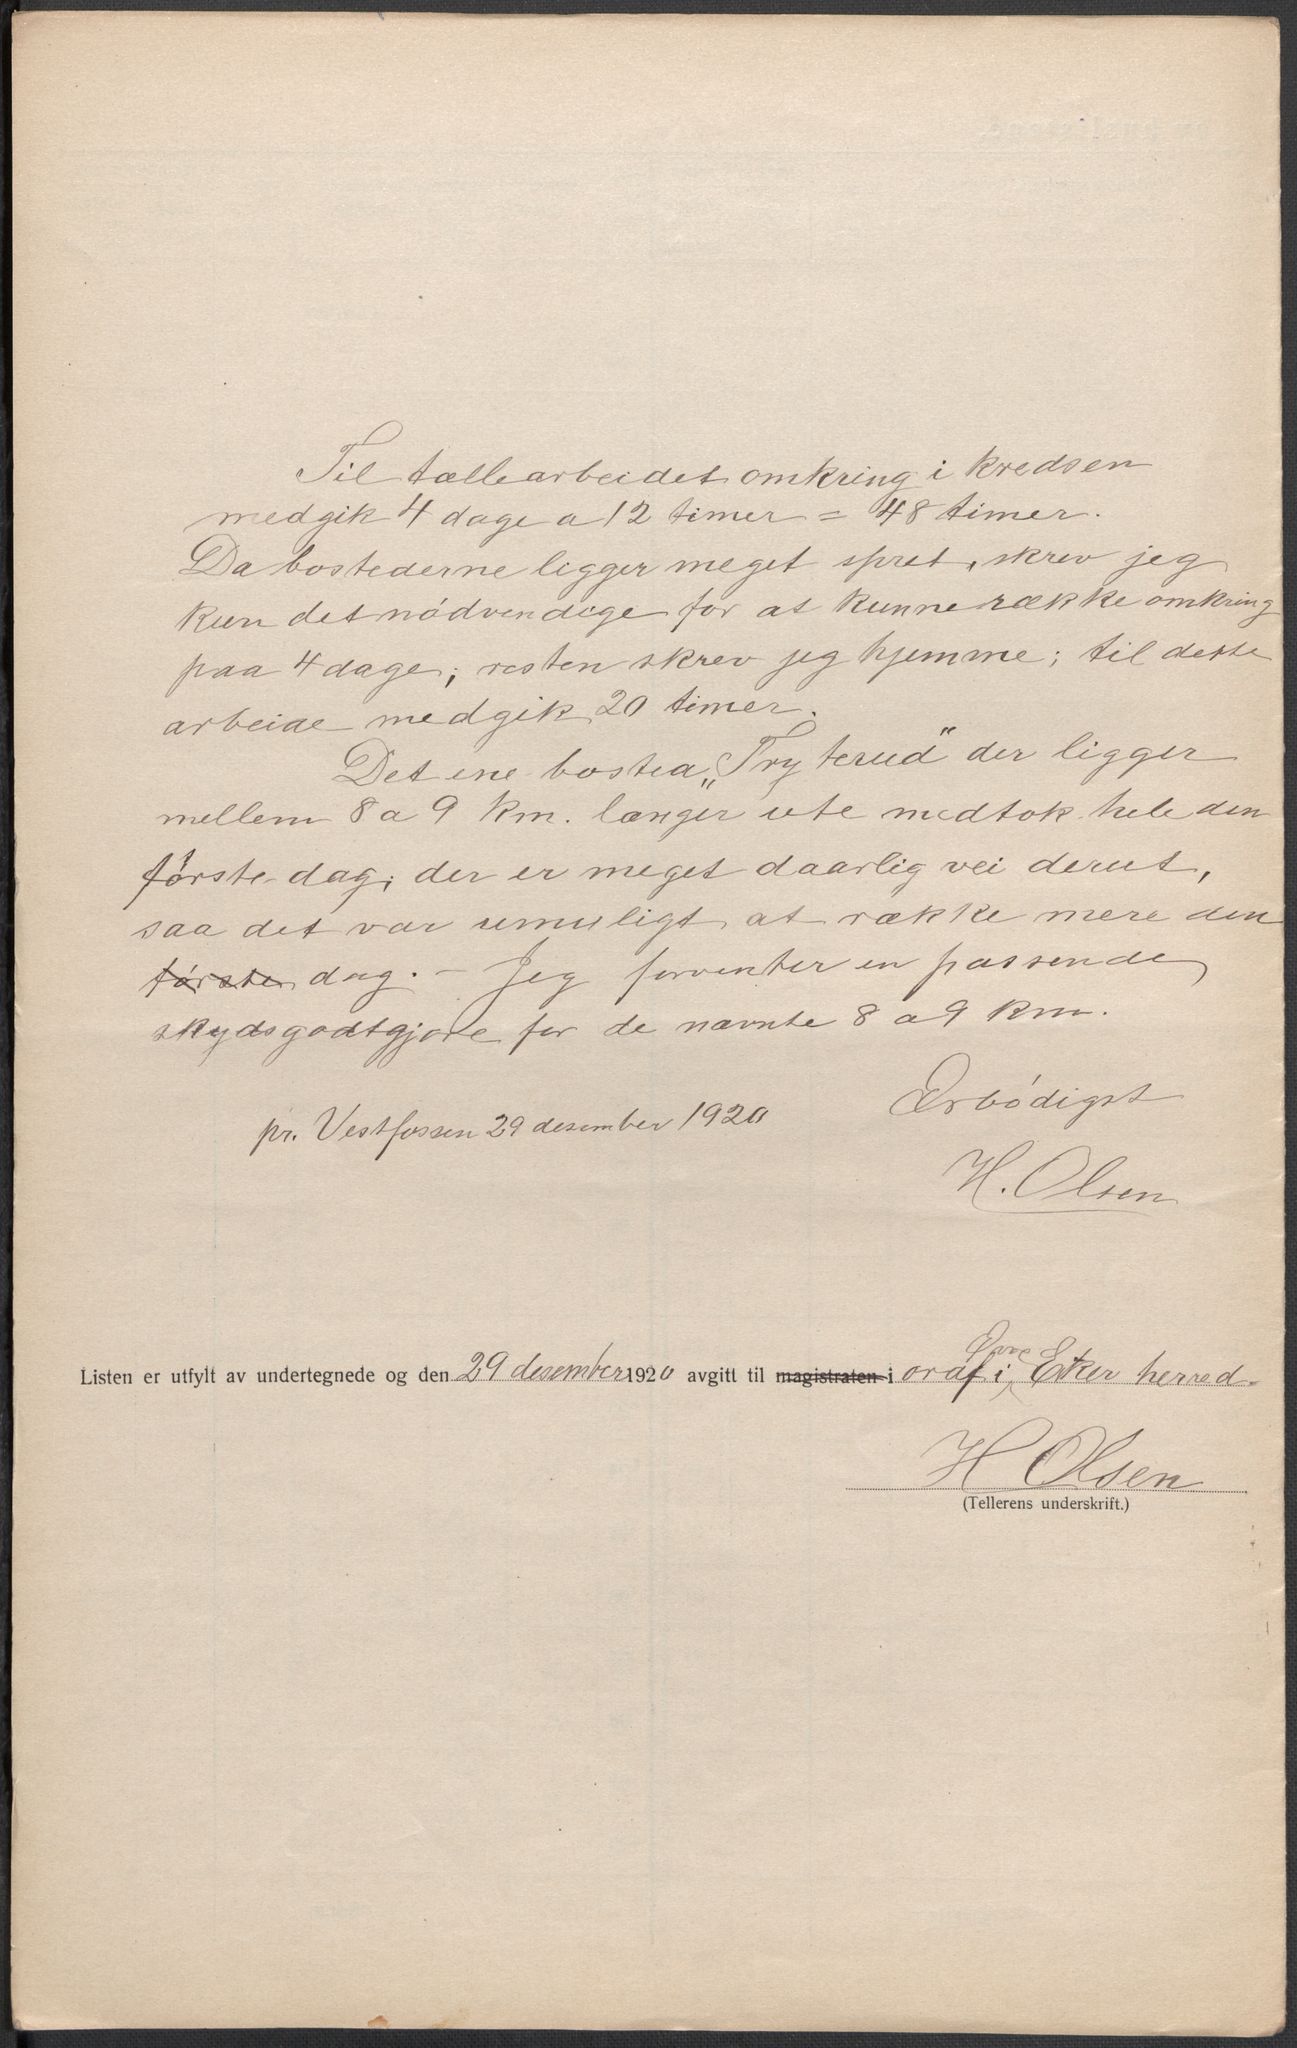 Til tællearbeidet omkring i kredsen
medgik 4 dage a 12 timer = 48 timer.
Da bostederne ligger meget spret, skrev jeg
kun det nødvendige for at kunne række omkring
paa 4 dage; resten skrev jeg hjemme; til dette
arbeide medgik 20 timer.
Det ene bosted „Tryterud" der ligger
mellem 8 a 9 km. længer ute medtok hele den
første dag; der er meget daarlig vei derut,
saa det var umuligt at række mere den
første dag. – Jeg forventer en passende
skydsgodtgjøre for de nævnte 8 a 9 km.
Ærbødigst
pr. Vestfossen 29 desember 1920
H. Olsen
Listen er utfylt av undertegnede og den 29 desember 1920 avgitt til magistraten i ordf i Øvre Eker herred
H Olsen
(Tellerens underskrift.)